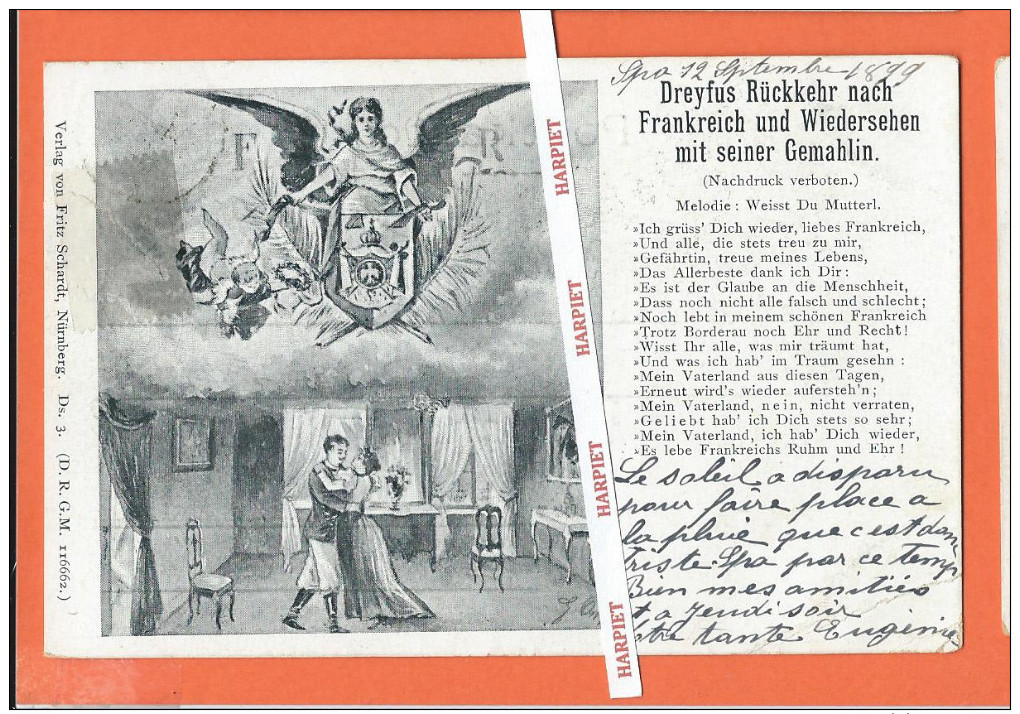 Spa 12 Septembre 1899
Dreyfus Rückkehr nach
Frankreich und Wiedersehen
mit seiner Gemahlin.
(Nachdruck verboten.)
Melodie: Weisst Du Mutterl.
»Ich grüss' Dich wieder, liebes Frankreich,
»Und alle, die stets treu zu mir,
»Gefährtin, treue meines Lebens,
»Das Allerbeste dank ich Dir:
»Es ist der Glaube an die Menschheit,
»Dass noch nicht alle falsch und schlecht;
»Noch lebt in meinem schönen Frankreich
»Trotz Borderau noch Ehr und Recht!
»Wisst Ihr alle, was mir träumt hat,
»Und was ich hab' im Traum gesehn:
»Mein Vaterland aus diesen Tagen,
»Erneut wird's wieder aufersteh'n;
»Mein Vaterland, nein, nicht verraten,
»Geliebt hab' ich Dich stets so sehr;
»Mein Vaterland, ich hab' Dich wieder,
»Es lebe Frankreichs Ruhm und Ehr!
Le soleil a disparu
pour faire place a
la pluie que c'est dans
triste Spa par ce temps
Bien mes amitiés
et a Jeudi soir
votre tante Eugénie
Verlag von Fritz Schardt, Nürnberg. Ds. 3. (D. R. G. M. 116662.)
HARPIET
HARPIET
HARPIET
HARPIET